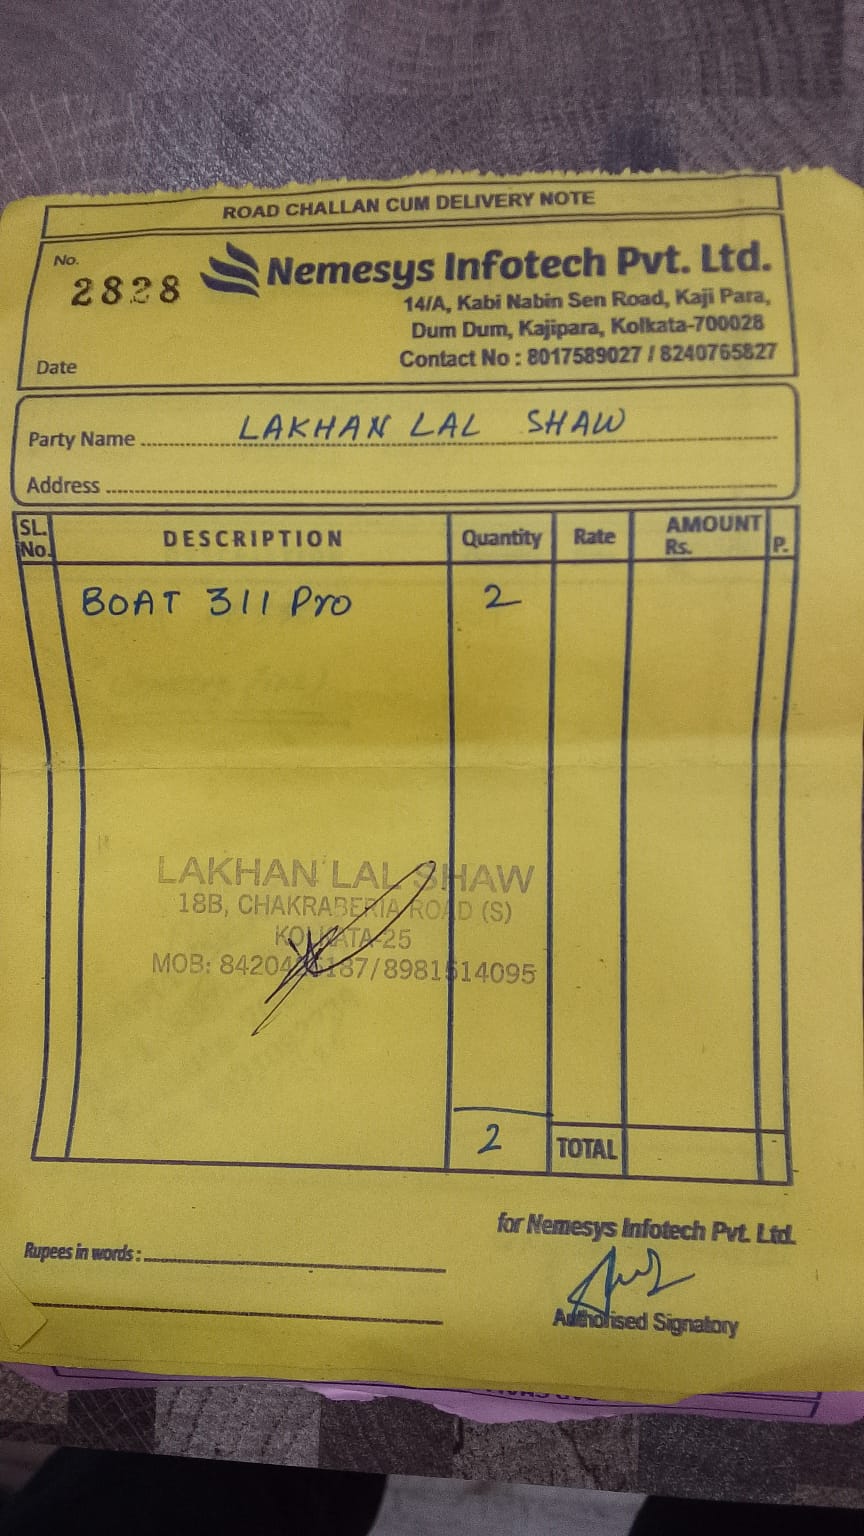 ROAD CHALLAN CUM DELIVERY NOTE
No.
2828
Nemesys Infotech Pvt. Ltd.
14/A, Kabi Nabin Sen Road, Kaji Para,
Dum Dum, Kajipara, Kolkata-700028
Date
Contact No : 8017589027 / 8240765827
Party Name LAKHAN LAL SHAW
Address
SL. No. DESCRIPTION Quantity Rate AMOUNT Rs. P.
BOAT 311 Pro 2
LAKHAN LAL SHAW
18B, CHAKRABERIA ROAD (S)
KOLKATA-25
MOB: 8981514095
2 TOTAL
for Nemesys Infotech Pvt. Ltd.
Rupees in words :
Authorised Signatory